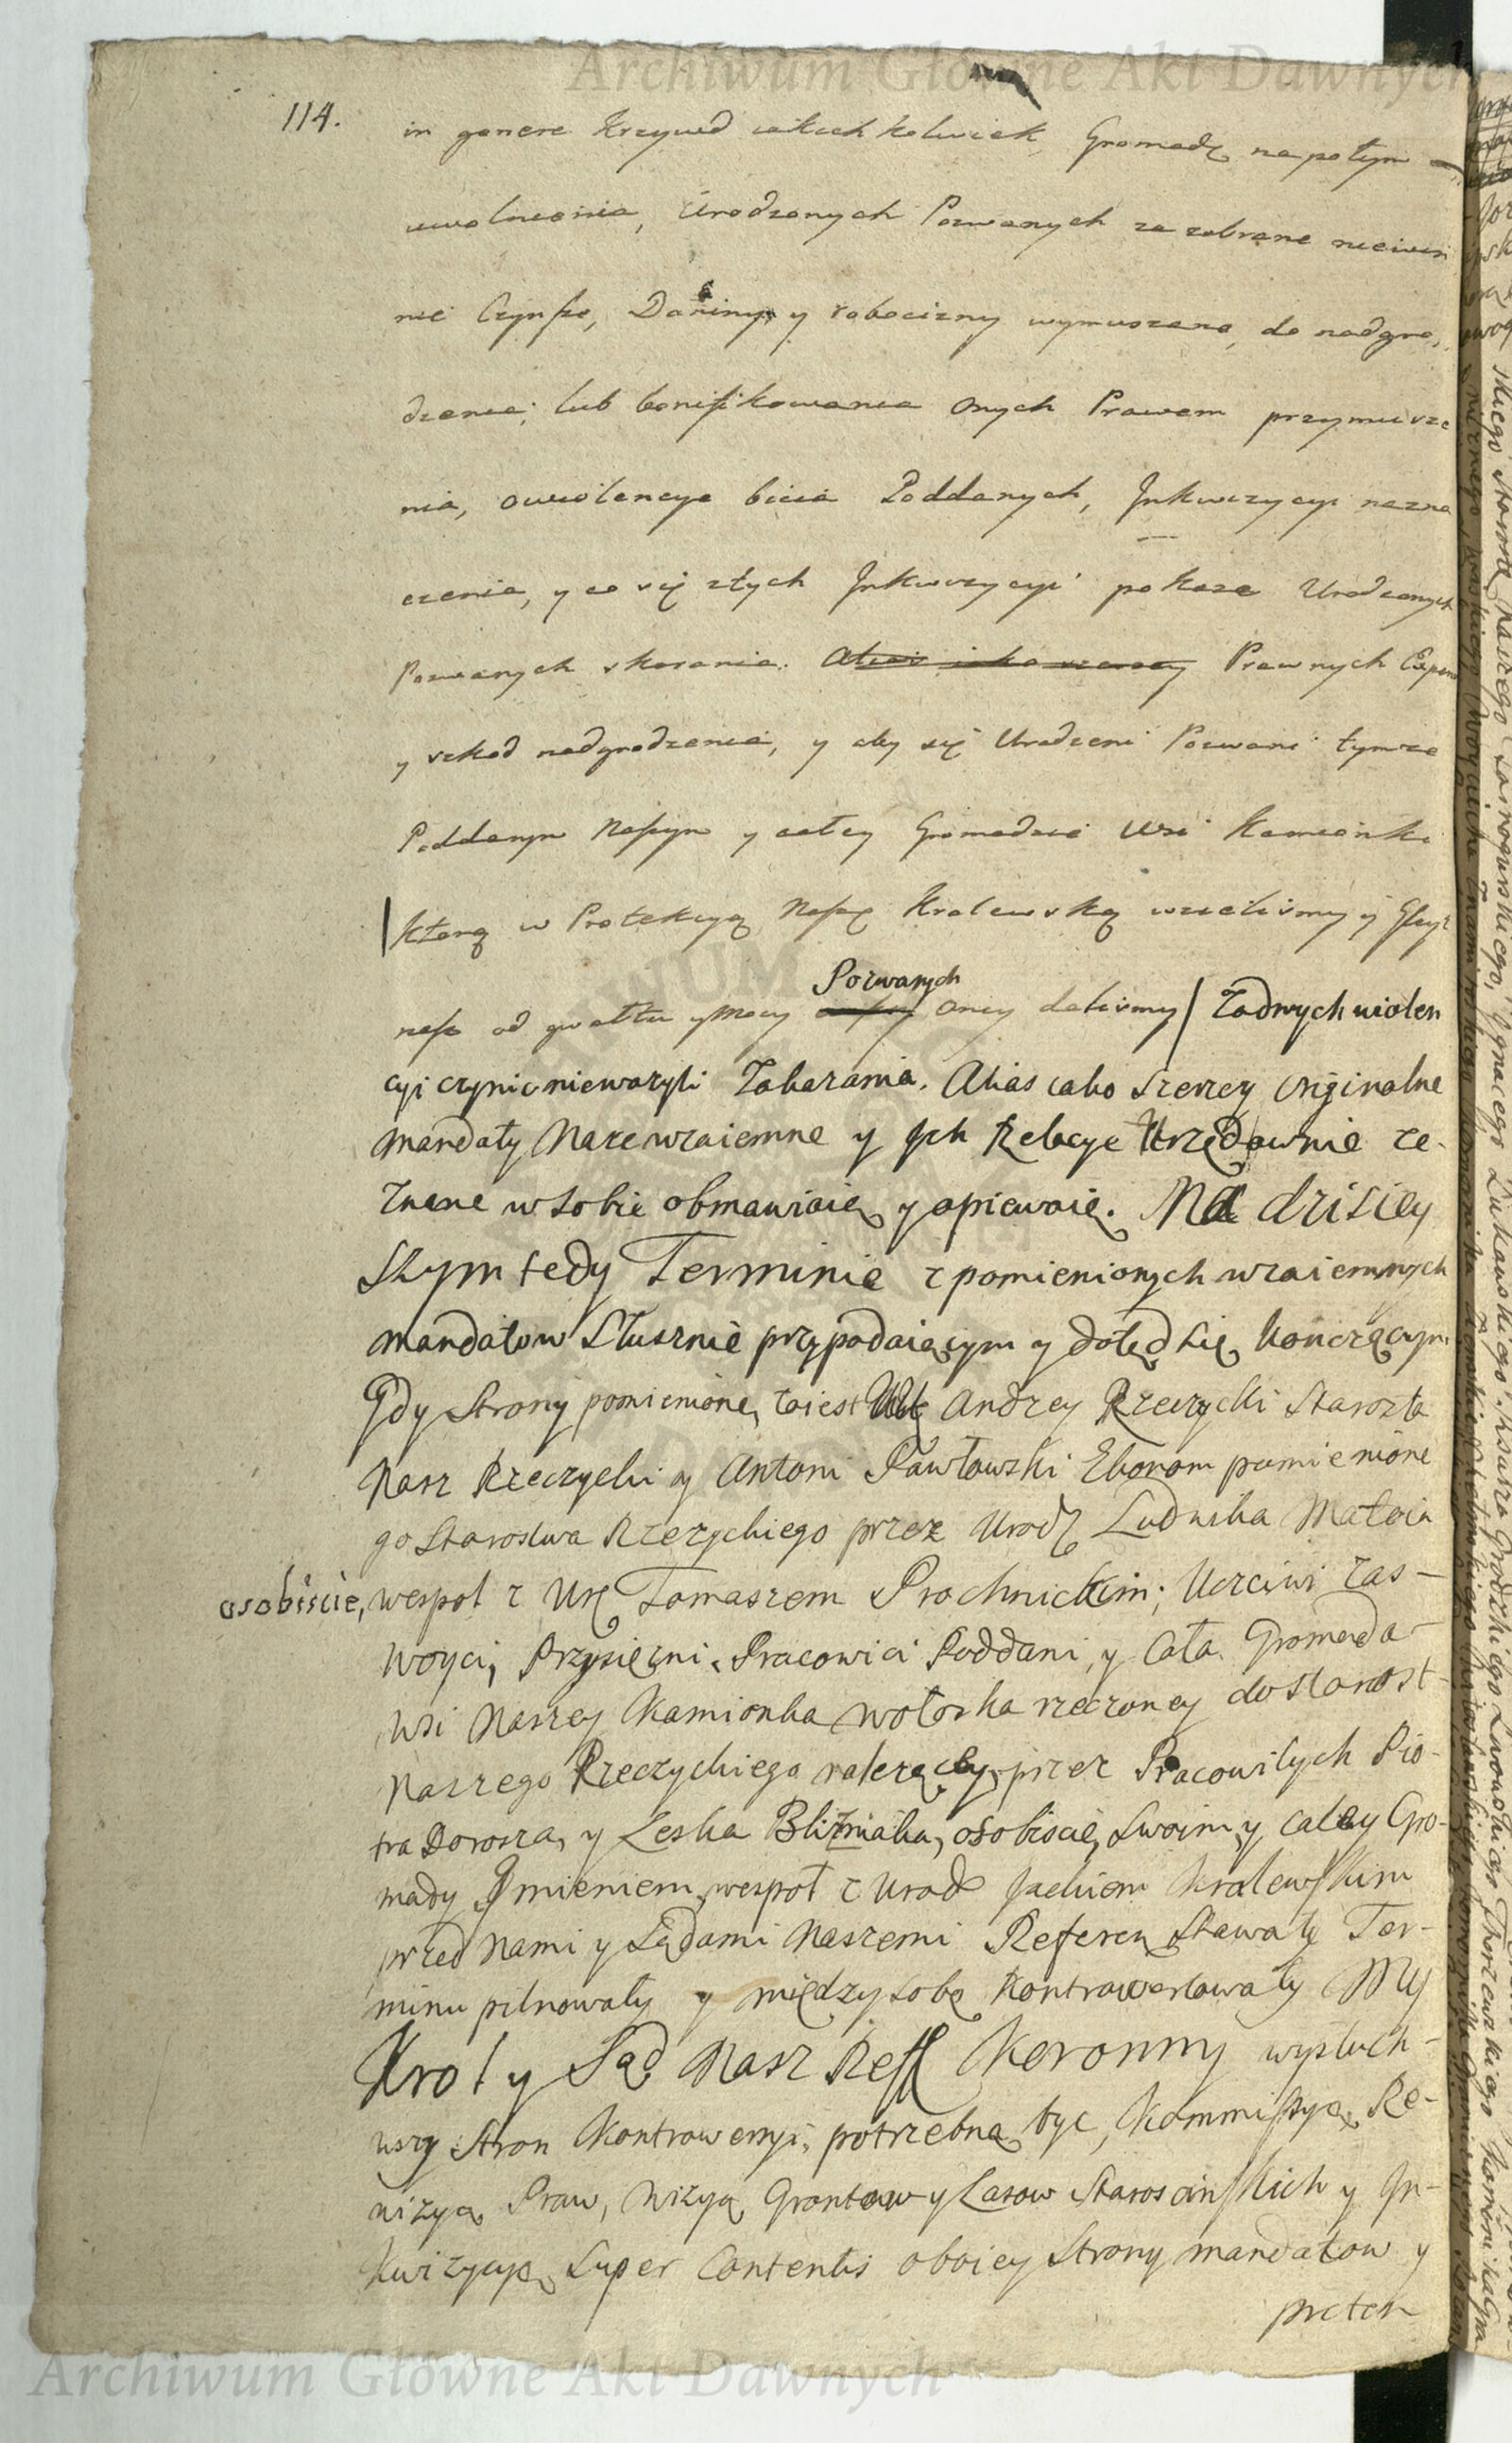 Archiwum Główne Akt Dawnych
114.
in genere Krzywd iakichkolwiek Gromadę napotym
uwolnienia, Urodzonych Pozwanych za zabrane niewin
nie Czynsze, Daniny y robocizny wymuszone, do nadgro,
dzenia; lub bonifikowania Onych Prawem przymusze
nia, o wiolencye bicia Poddanych, Jnkwizycyi nazna
czenia, y co się z tych Jnkwizycyi pokaze Urodzonych
Pozwanych skarania. Prawnych Expens
y szkod nadgrodzenia, y aby się Urodzeni Pozwani tymze
Poddanym Naszym y całey Gromadzie Wsi Kamionki
ktorą w Protekcyą Naszę Krolewską wzieliśmy y Gleyt
nasz od gwałtu y Mocy Pozwanych oney daliśmy Zadnych wiolen
cyi czynic niewazyli Zakazania. Alias iako szerzey originalne
Mandaty Nasze wzaiemne y Jch Relacye Urzędownie ze-
znane w sobie obmawiaię y opiewaię. Na dzisiey
szym tedy Terminie z pomienionych wzaiemnych
Mandatow słusznie przypadaiącym y dotąd się konczącym
Gdy Strony pomienione, to iest Andrzey Rzeczycki Starosta
Nasz Rzeczycki y Antoni Pawłowski Ekonom pomienione
go Starostwa Rzeczyckiego przez Urodz Ludwika Małcia
osobiscie, wespoł z Ur Tomaszem Prochnickim; Uczciwi Zas-
Woyci, Przysiężni, Pracowici Poddani, y Cała Gromada
Wsi Naszey Kamionka Wołoska rzeczoney do Starost-
Naszego Rzeczyckiego należący przez Pracowitych Pio-
tra Dorosza, y Leska Blizniaka, osobiscie, swoim y całey Gro-
mady Jmieniem, wespoł z Urodz Jackiem Kralewskim
przed Nami y Sądami Naszemi Referen stawały Ter-
minu pilnowały y między sobą kontrowertowały My
Krol y Sąd Nasz Reff Koronny wysłuch-
wszy Stron Kontrowersyi, potrzebną byc, Kommissyą Re-
wizyą Praw, Wizyą Grontow y Lasow Staroscinskich y Jn-
kwizycyę Super Contentis oboiey Strony mandatow y
preten
Archiwum Główne Akt Dawnych